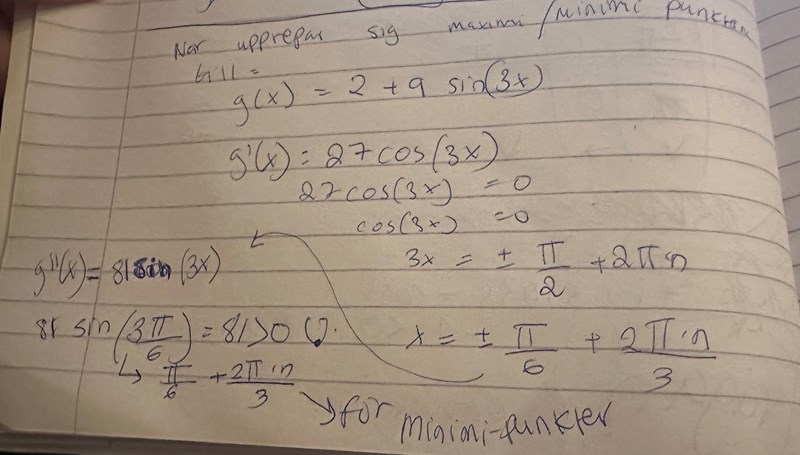 När upprepar sig maximi/minimi punkten
till =
g(x) = 2 + 9 sin(3x)
g'(x) = 27 cos(3x)
27 cos(3x) = 0
cos(3x) = 0
3x = ± π/2 + 2π n
x = ± π/6 + 2π·n/3
g''(x) = 81 sin (3x)
81 sin(3π/6) = 81 > 0
↳ π/6 + 2π·n/3 → för minimi-punkter